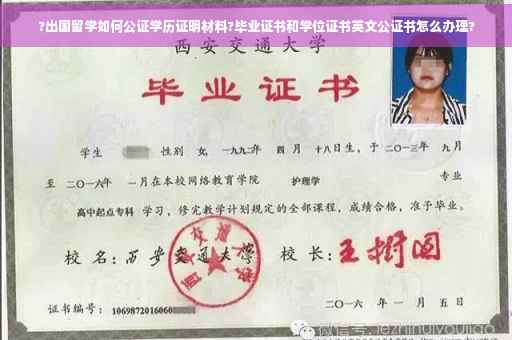 ?出国留学如何公证学历证明材料?毕业证书和学位证书英文公证书怎么办理?
西安交通大学
毕业证书
学生 性别 女, 一九九二年 四月 十八日生, 于 二〇一三年 九月
至 二〇一六年 一月在本校网络教育学院 护理学 专业
高中起点专科 学习, 修完教学计划规定的全部课程, 成绩合格, 准予毕业。
校 名: 西安交通大学 校 长: 王树国
西安交通大学
证书编号: 1069872016060
二〇一六 年 一 月 五 日
微信号: jezhihuiyoujiao